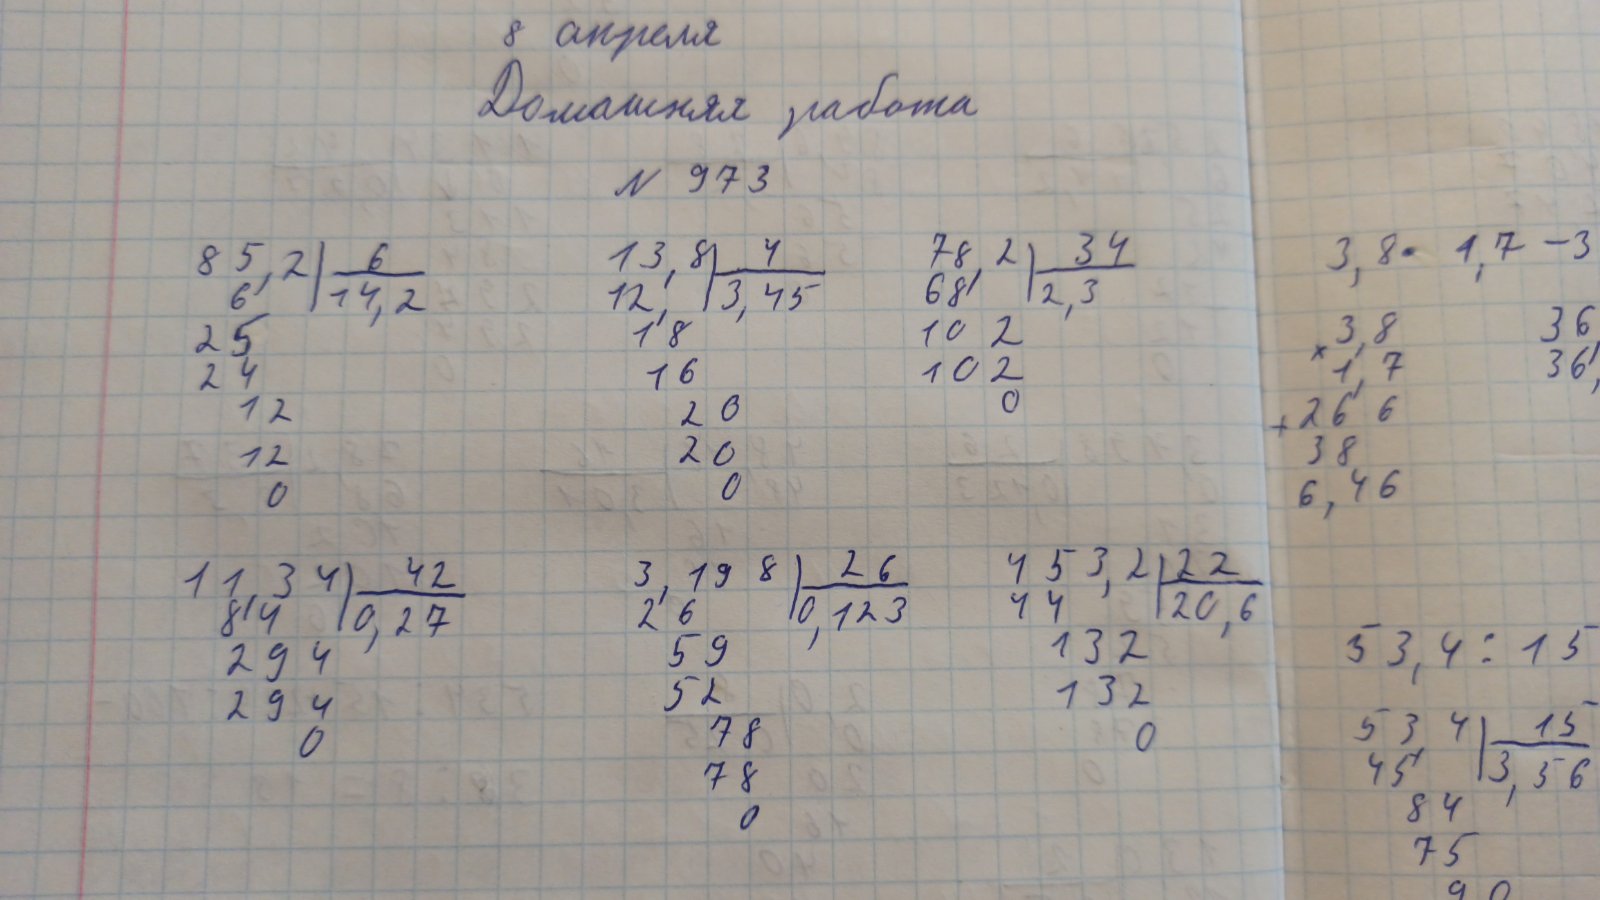 8 апреля
Домашняя работа
N 973
85,2 6
6 14,2
25
24
12
12
0
13,8 4
12 3,45
18
16
20
20
0
78,2 34
68 2,3
102
102
0
11,34 42
84 0,27
294
294
0
3,198 26
26 0,123
59
52
78
78
0
453,2 22
44 20,6
132
132
0
3,8 · 1,7 - 3
× 3,8
1,7
+ 266
38
6,46
36
36,
53,4 : 15
53,4 15
45 3,56
84
75
90